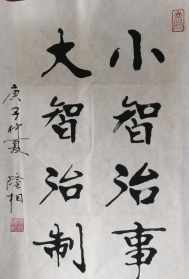 小智治事
大智治制
庚子仲夏
隆相